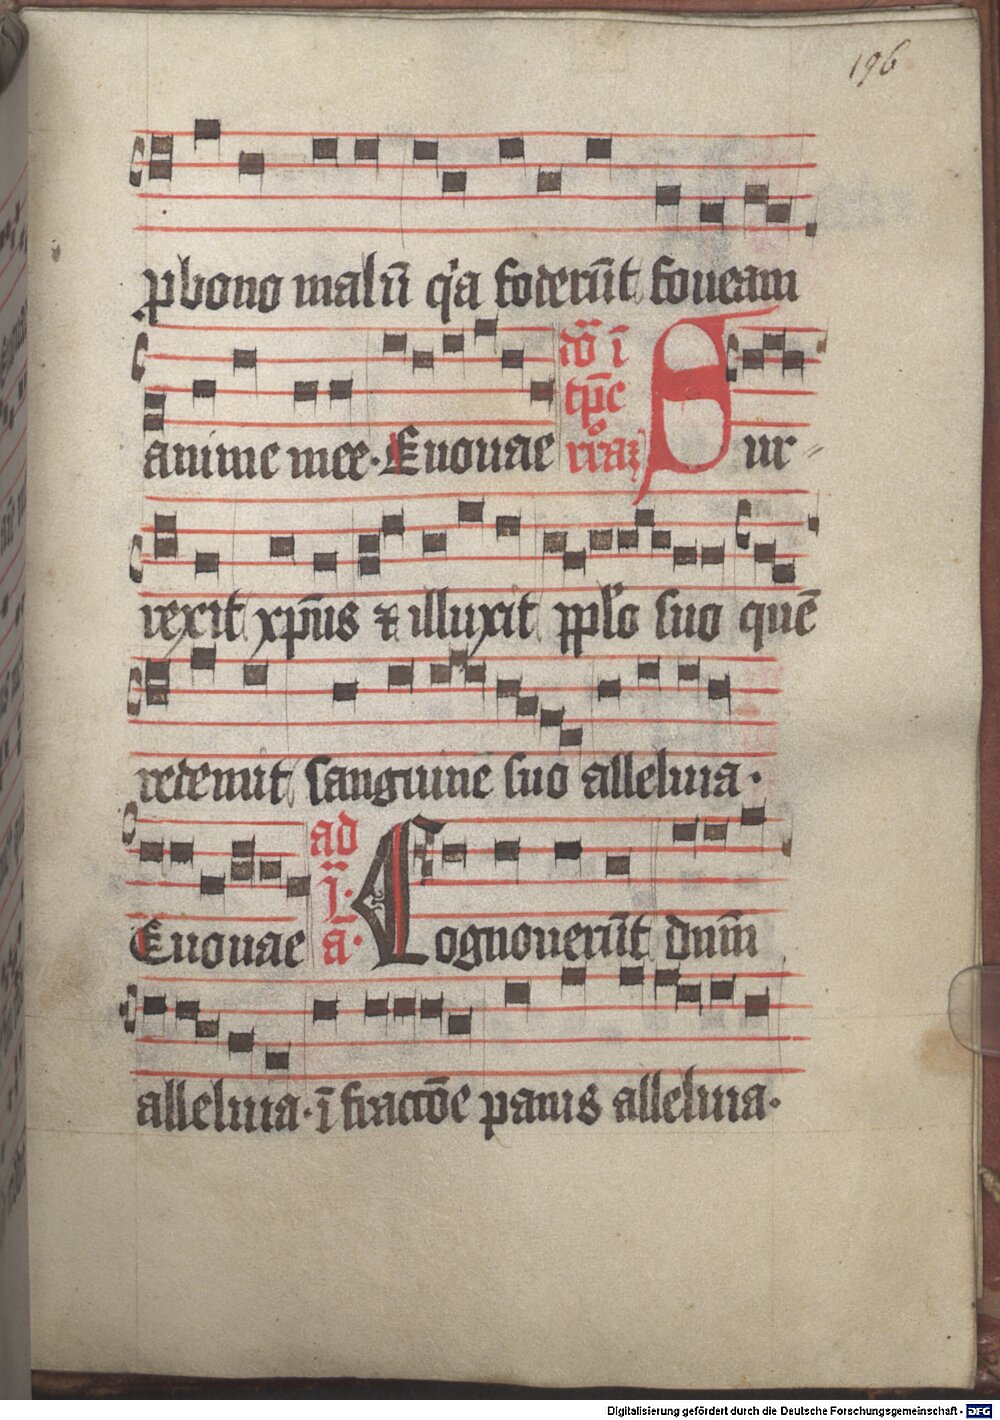 196
p bono malū q'a foderūt foueam
anime mee. Euouae
dō ī
tp̄e
rr̄az
Sur
rexit xp̄us & illuxit pp̄lo suo quē
redemit sanguine suo alleluia.
Euouae
ad
ī.
a.
Cognouerūt dn̄m
alleluia. ī fractōe panis alleluia.
Digitalisierung gefördert durch die Deutsche Forschungsgemeinschaft - DFG